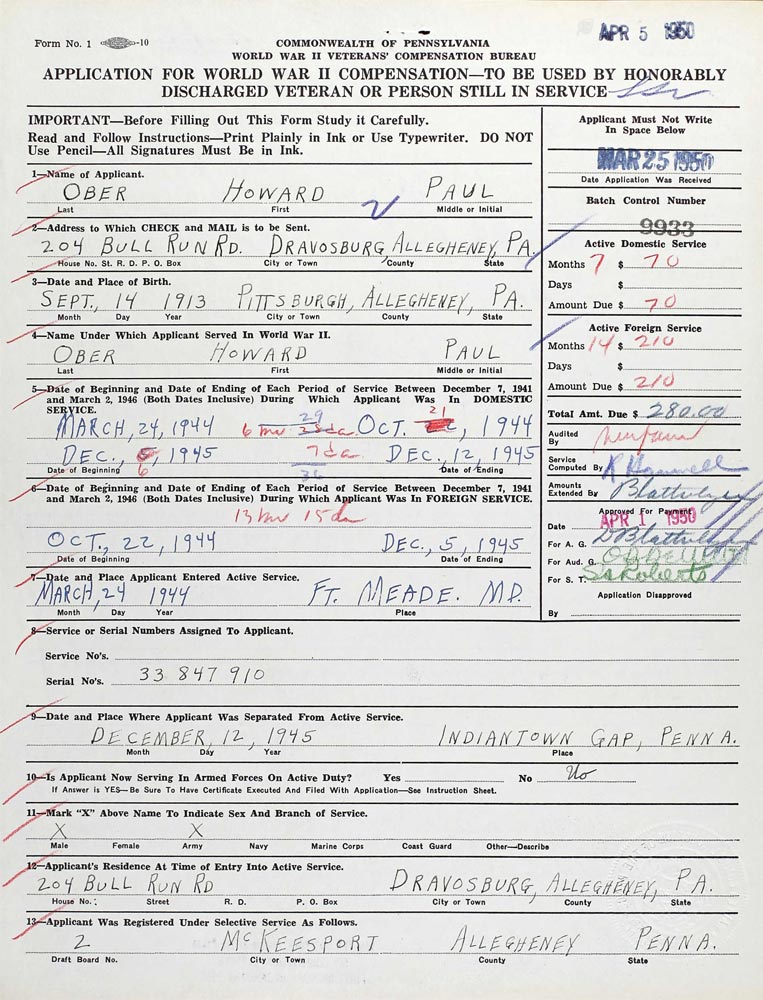 Form No. 1 -10
APR 5 1950
COMMONWEALTH OF PENNSYLVANIA
WORLD WAR II VETERANS' COMPENSATION BUREAU
APPLICATION FOR WORLD WAR II COMPENSATION—TO BE USED BY HONORABLY
DISCHARGED VETERAN OR PERSON STILL IN SERVICE
IMPORTANT—Before Filling Out This Form Study it Carefully.
Read and Follow Instructions—Print Plainly in Ink or Use Typewriter. DO NOT
Use Pencil—All Signatures Must Be in Ink.
1—Name of Applicant.
OBER HOWARD PAUL
Last First Middle or Initial
2—Address to Which CHECK and MAIL is to be Sent.
204 BULL RUN RD. DRAVOSBURG, ALLEGHENEY, PA.
House No. St. R. D. P. O. Box City or Town County State
3—Date and Place of Birth.
SEPT., 14 1913 PITTSBURGH, ALLEGHENEY, PA.
Month Day Year City or Town County State
4—Name Under Which Applicant Served In World War II.
OBER HOWARD PAUL
Last First Middle or Initial
5—Date of Beginning and Date of Ending of Each Period of Service Between December 7, 1941
and March 2, 1946 (Both Dates Inclusive) During Which Applicant Was In DOMESTIC
SERVICE.
29 21
MARCH, 24, 1944 6 mo da OCT. 1944
DEC., 1945 7 da DEC., 12, 1945
Date of Beginning 6 36 Date of Ending
6—Date of Beginning and Date of Ending of Each Period of Service Between December 7, 1941
and March 2, 1946 (Both Dates Inclusive) During Which Applicant Was In FOREIGN SERVICE.
13 mo 15 da
OCT., 22, 1944 DEC., 5, 1945
Date of Beginning Date of Ending
7—Date and Place Applicant Entered Active Service.
MARCH, 24 1944 FT. MEADE. MD.
Month Day Year Place
Applicant Must Not Write
In Space Below
MAR 25 1950
Date Application Was Received
Batch Control Number
9933
Active Domestic Service
Months 7 $ 70
Days $
Amount Due $ 70
Active Foreign Service
Months 14 $ 210
Days $
Amount Due $ 210
Total Amt. Due $ 280.00
Audited
By
Service
Computed By
Amounts
Extended By
Approved For Payment
APR 1 1950
Date
For A. G.
For Aud. G.
For S. T. Roberts
Application Disapproved
By
8—Service or Serial Numbers Assigned To Applicant.
Service No's.
Serial No's. 33 847 910
9—Date and Place Where Applicant Was Separated From Active Service.
DECEMBER, 12, 1945 INDIANTOWN GAP, PENNA.
Month Day Year Place
10—Is Applicant Now Serving In Armed Forces On Active Duty? Yes No No
If Answer is YES—Be Sure To Have Certificate Executed And Filed With Application—See Instruction Sheet.
11—Mark "X" Above Name To Indicate Sex and Branch of Service.
X X
Male Female Army Navy Marine Corps Coast Guard Other—Describe
12—Applicant's Residence At Time of Entry Into Active Service.
204 BULL RUN RD DRAVOSBURG, ALLEGHENEY, PA.
House No. Street R. D. P. O. Box City or Town County State
13—Applicant Was Registered Under Selective Service As Follows.
2 McKEESPORT ALLEGHENEY PENNA.
Draft Board No. City or Town County State